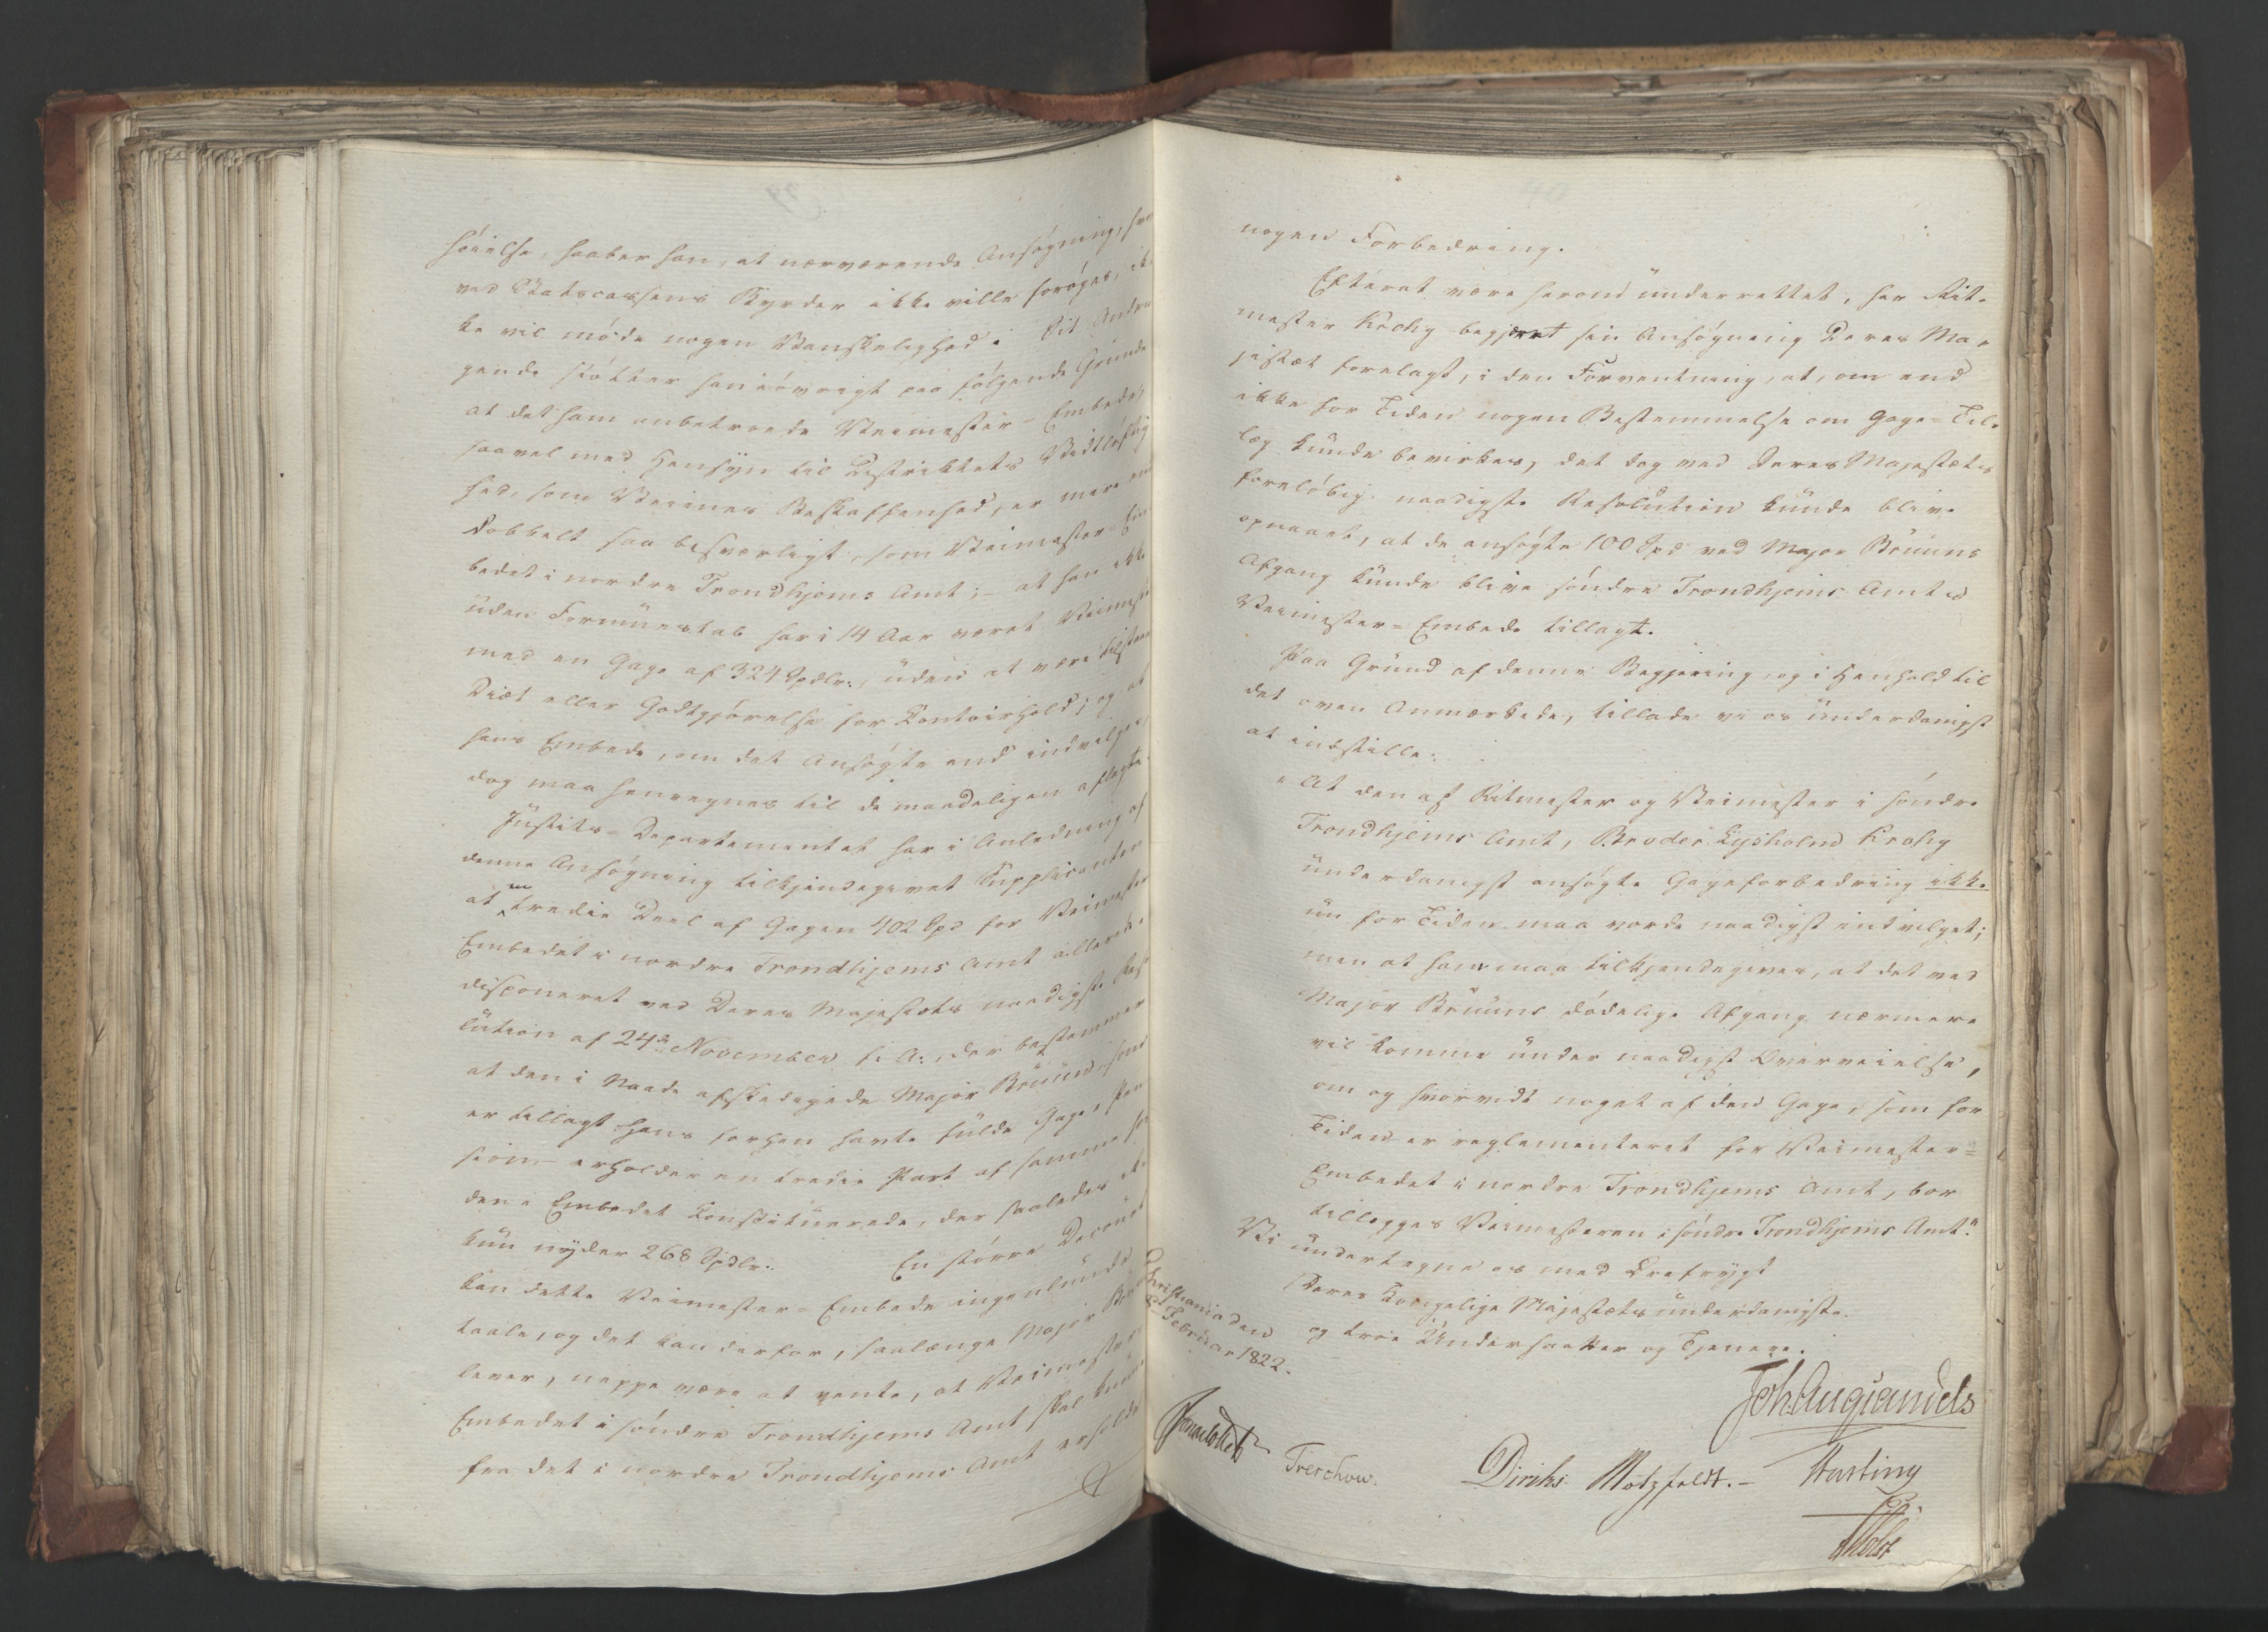 høielse, haaber han, at nærværende Ansøgning, hvor-
ved Statscassens Byrder ikke ville forøges, ik-
ke vil møde nogen Vanskelighed i Sit Andra-
gende støtter han iøvrigt paa følgende Grunde
at det ham anbetroede Veimester-Embede,
saavel med Hensyn til Distriktets Vidtløftig-
hed, som Veienes Beskaffenhed, er mere end
dobbelt saa besværligt, som Veimester-Em-
bedet i nordre Trondhjems Amt; - at han ikke
uden Formuestab har i 14 Aar været Veimester
med en Gage af 324 Spdlr:, uden at være tilstaaet
Diæt eller Godtgjørelse for Contoirhold; og at
hans Embede, om det Ansøgte end indvilges,
dog maa henregnes til de maadeligen aflagte.
Justits-Departementet har i Anledning af
denne Ansøgning tilkjendegivet Supplicanten
at en tredie Deel af Gagen 402 Spd for Veimester
Embedet i nordre Trondhjems Amt allerede e
disponeret ved Deres Majestæts naadigste Reso-
lution af 24de November f: A:, der bestemmer
at den i Naade afskedigede Major Bruun, som
er tillagt hans forhen havte fulde Gage i Pen-
sion, - erholder en tredie Part af samme hos
den i Embedet Constituerede, der saaledes ik-
kun nyder 268 Spdlr:. En større Decourt
kan dette Veimester-Embede ingenlunde
taale, og det kan derfor, saalænge Major Bruun
lever, neppe være at vente, at Veimester-
Embedet i søndre Trondhjems Amt skal kunne
fra det i nordre Trondhjems Amt erholde
nogen Forbedring.
Efterat være herom underrettet, har Rit-
mester Krohg begjært sin Ansøgning Deres Ma-
jestæt forelagt, i den Forventning, at, om end
ikke for Tiden nogen Bestemmelse om Gage-Til-
læg kunde bevirkes, det dog ved Deres Majestæts
foreløbig naadigste Resolution kunde blive
opnaaet, at de ansøgte 100 Spd ved Major Bruuns
Afgang kunde blive søndre Trondhjems Amts
Veimester-Embede tillagt.
Paa Grund af denne Begjering, og i Henhold til
det oven Anmærkede, tillade vi os underdanigst
at indstille:
"At den af Ritmester og Veimester i søndre
Trondhjems Amt, Broder Lysholm Krohg
underdanigst ansøgte Gageforbedring ikke
nu for Tiden maa vorde naadigst indvilget;
men at ham maa tilkjendegives, at det ved
Major Bruuns dødelige Afgang nærmere
vil komme under naadigst Overveielse,
om og hvorvidt noget af den Gage, som for
Tiden er reglementeret for Veimester-
Embedet i nordre Trondhjems Amt, bør
tillægges Veimesteren i søndre Trondhjems Amt."
Vi undertegne os med Ærefrygt
Deres Kongelige Majestæts underdanigste
og troe Undersaatter og Tjenere.
Christiania den
Februar 1822.
Joh. Aug Sandels
Sommerhielm
Treschow.
Diriks Motzfeldt. - Hasting
Holst